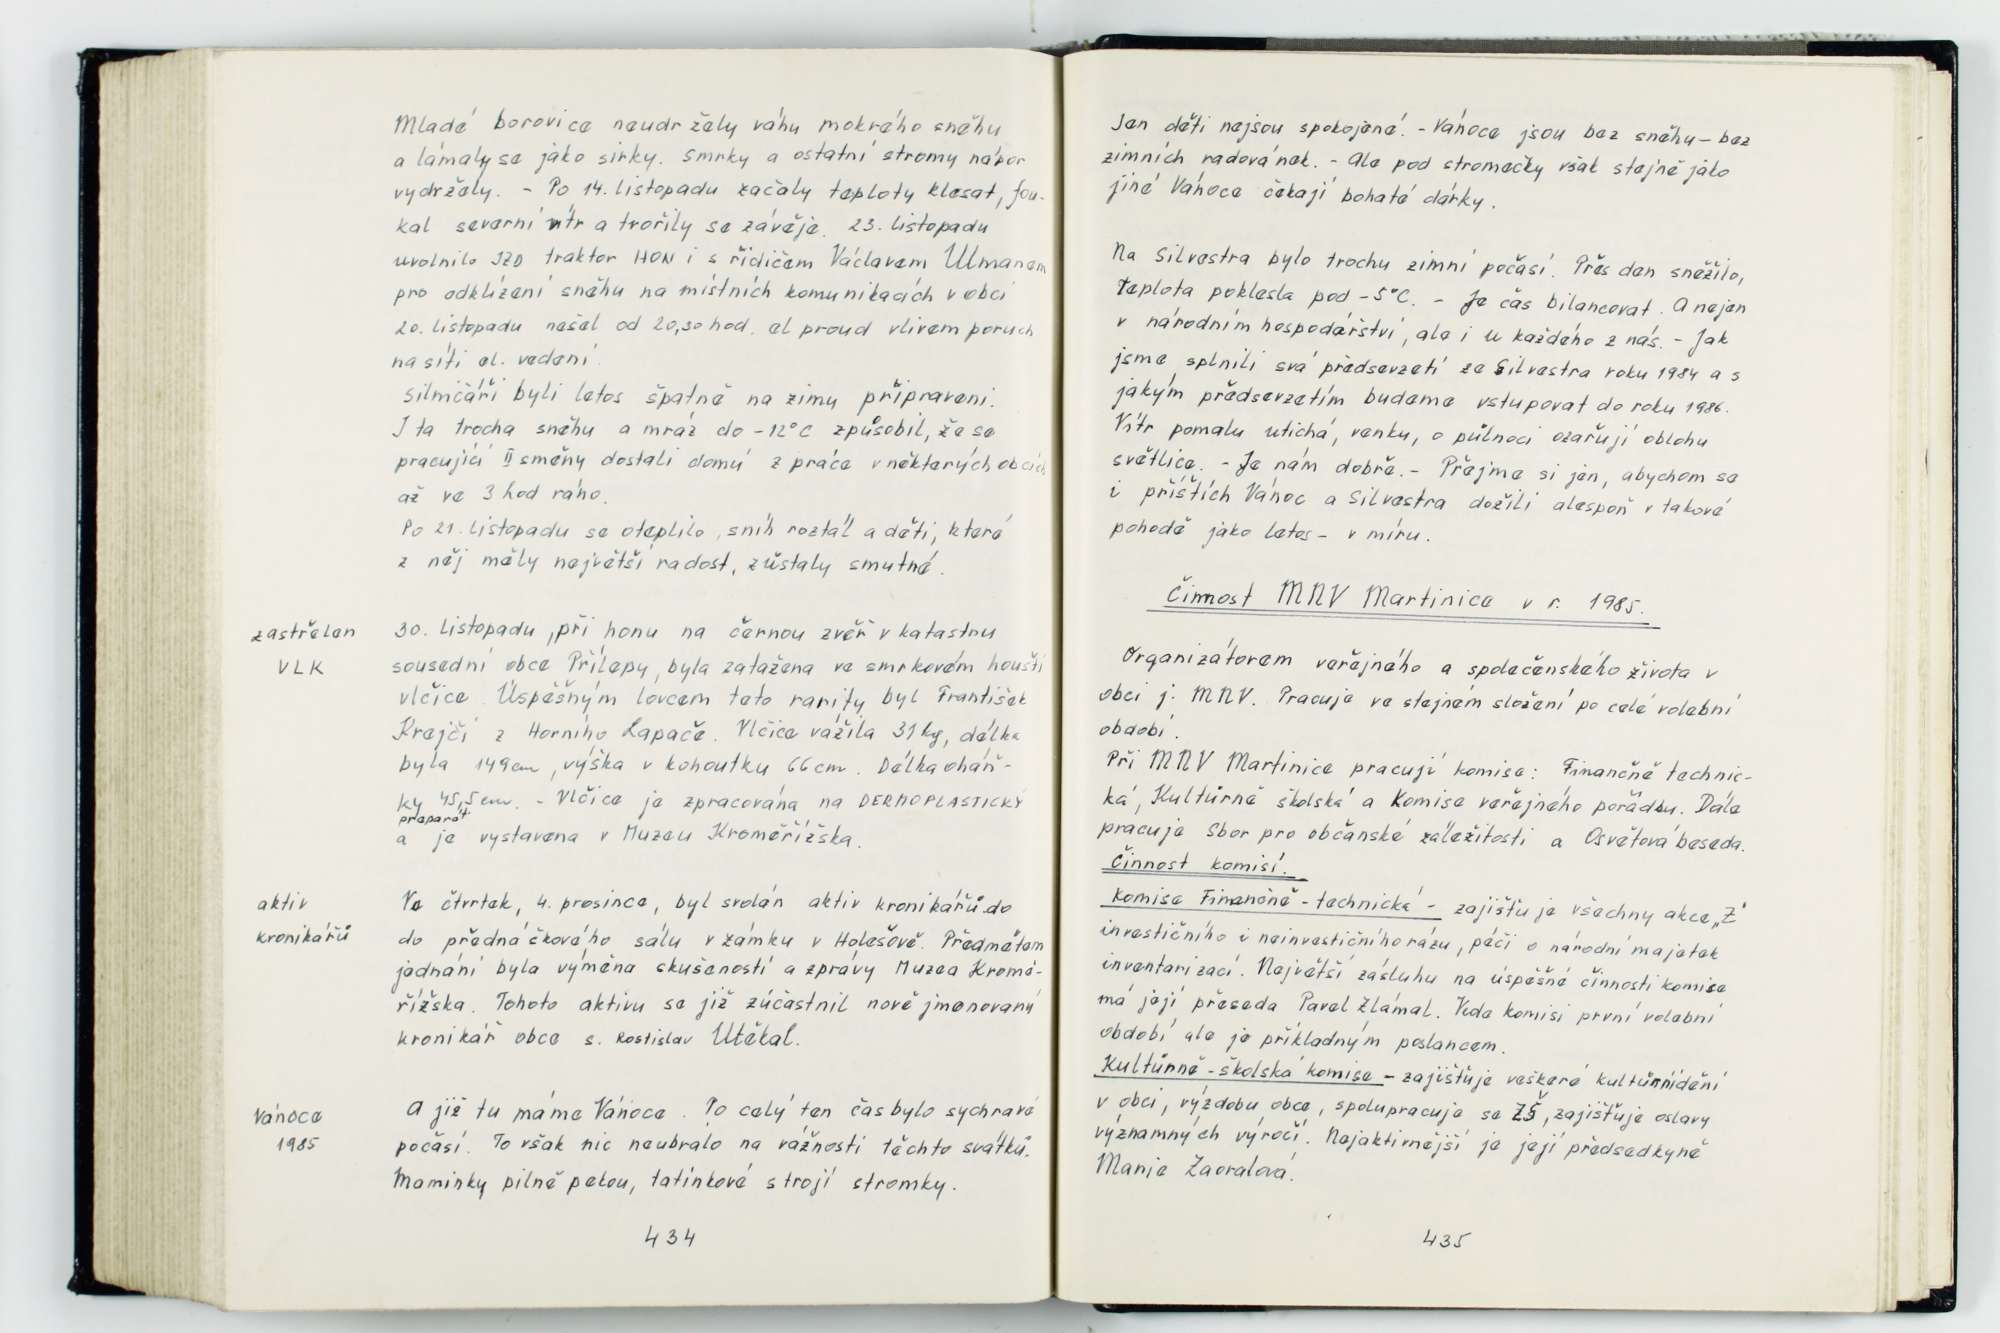 Mladé borovice neudržely váhu mokrého sněhu
a lámaly se jako sirky. Smrky a ostatní stromy nápor
vydržely. - Po 14. listopadu začaly teploty klesat, fou-
kal severní vítr a tvořily se závěje. 23. listopadu
uvolnilo JZD traktor HON i s řidičem Václavem Ulmanem
pro odklízení sněhu na místních komunikacích v obci
20. listopadu nešel od 20,30 hod. el proud vlivem poruch
na síti el. vedení.
Silničáři byli letos špatně na zimu připraveni.
I ta trocha sněhu a mráz do -12°C způsobil, že se
pracující II směny dostali domů z práce v některých obcích
až ve 3 hod ráno.
Po 21. listopadu se oteplilo, sníh roztál a děti, které
z něj měly největší radost, zůstaly smutné.
zastřelen
VLK
30. listopadu, při honu na černou zvěř v katastru
sousední obce Přílepy, byla zatažena ve smrkovém houští
vlčice. Úspěšným lovcem této rarity byl František
Krejčí z Horního Lapače. Vlčice vážila 31 kg, délka
byla 149 cm, výška v kohoutku 66 cm. Délka oháň-
ky 45,5 cm. - Vlčice je zpracována na DERMOPLASTICKÝ
preparát
a je vystavena v Muzeu Kroměřížska.
aktiv
kronikářů
Ve čtvrtek, 4. prosince, byl svolán aktiv kronikářů do
do přednáčkového sálu v zámku v Holešově. Předmětem
jednání byla výměna skušeností a zprávy Muzea Kromě-
řížska. Tohoto aktivu se již zúčastnil nově jmenovaný
kronikář obce s. Rostislav Utěkal.
Vánoce
1985
A již tu máme Vánoce. Po celý ten čas bylo sychravé
počasí. To však nic neubralo na vážnosti těchto svátků.
Maminky pilně pekou, tatínkové strojí stromky.
434
Jen děti nejsou spokojené. - Vánoce jsou bez sněhu - bez
zimních radovánek. - Ale pod stromečky však stejně jako
jiné Vánoce čekají bohaté dárky.
Na Silvestra bylo trochu zimní počasí. Přes den sněžilo,
teplota poklesla pod -5°C. - Je čas bilancovat. A nejen
v národním hospodářství, ale i u každého z nás. - Jak
jsme splnili svá předsevzetí ze Silvestra roku 1984 a s
jakým předsevzetím budeme vstupovat do roku 1986.
Vítr pomalu utichá, venku, o půlnoci ozařují oblohu
světlice. - Je nám dobře. - Přejme si jen, abychom se
i příštích Vánoc a Silvestra dožili alespoň v takové
pohodě jako letos - v míru.
Činnost MNV Martinice v r. 1985.
Organizátorem veřejného a společenského života v
obci j. MNV. Pracuje ve stejném složení po celé volební
období.
Při MNV Martinice pracují komise: Finančně technic-
ká, Kultůrně školská a Komise veřejného pořádku. Dále
pracuje Sbor pro občanské záležitosti a Osvětová beseda.
Činnost komisí.
Komise Finančně - technická - zajišťuje všechny akce „Z"
investičního i neinvestičního rázu, péči o národní majetek
inventarizací. Největší zásluhu na úspěšné činnosti komise
má její přeseda Pavel Zlámal. Vede komisi první volební
období ale je příkladným poslancem.
Kultůrně - školská komise - zajišťuje veškeré kultůrní dění
v obci, výzdobu obce, spolupracuje se ZŠ, zajišťuje oslavy
významných výročí. Nejaktivnější je její předsedkyně
Marie Zaoralová.
435